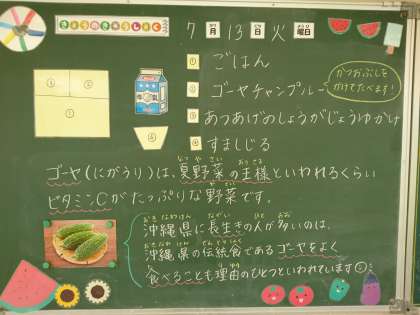 きょうのきゅうしょく
7月13日火曜日
① ごはん
② ゴーヤチャンプルー
かつおぶしを
かけてたべます!
③ あつあげのしょうがじょうゆがけ
④ すましじる
ゴーヤ(にがうり)は、夏野菜の王様といわれるくらい
ビタミンCがたっぷりな野菜です。
沖縄県に長生きの人が多いのは、
沖縄県の伝統食であるゴーヤをよく
食べることも理由のひとつといわれています☺